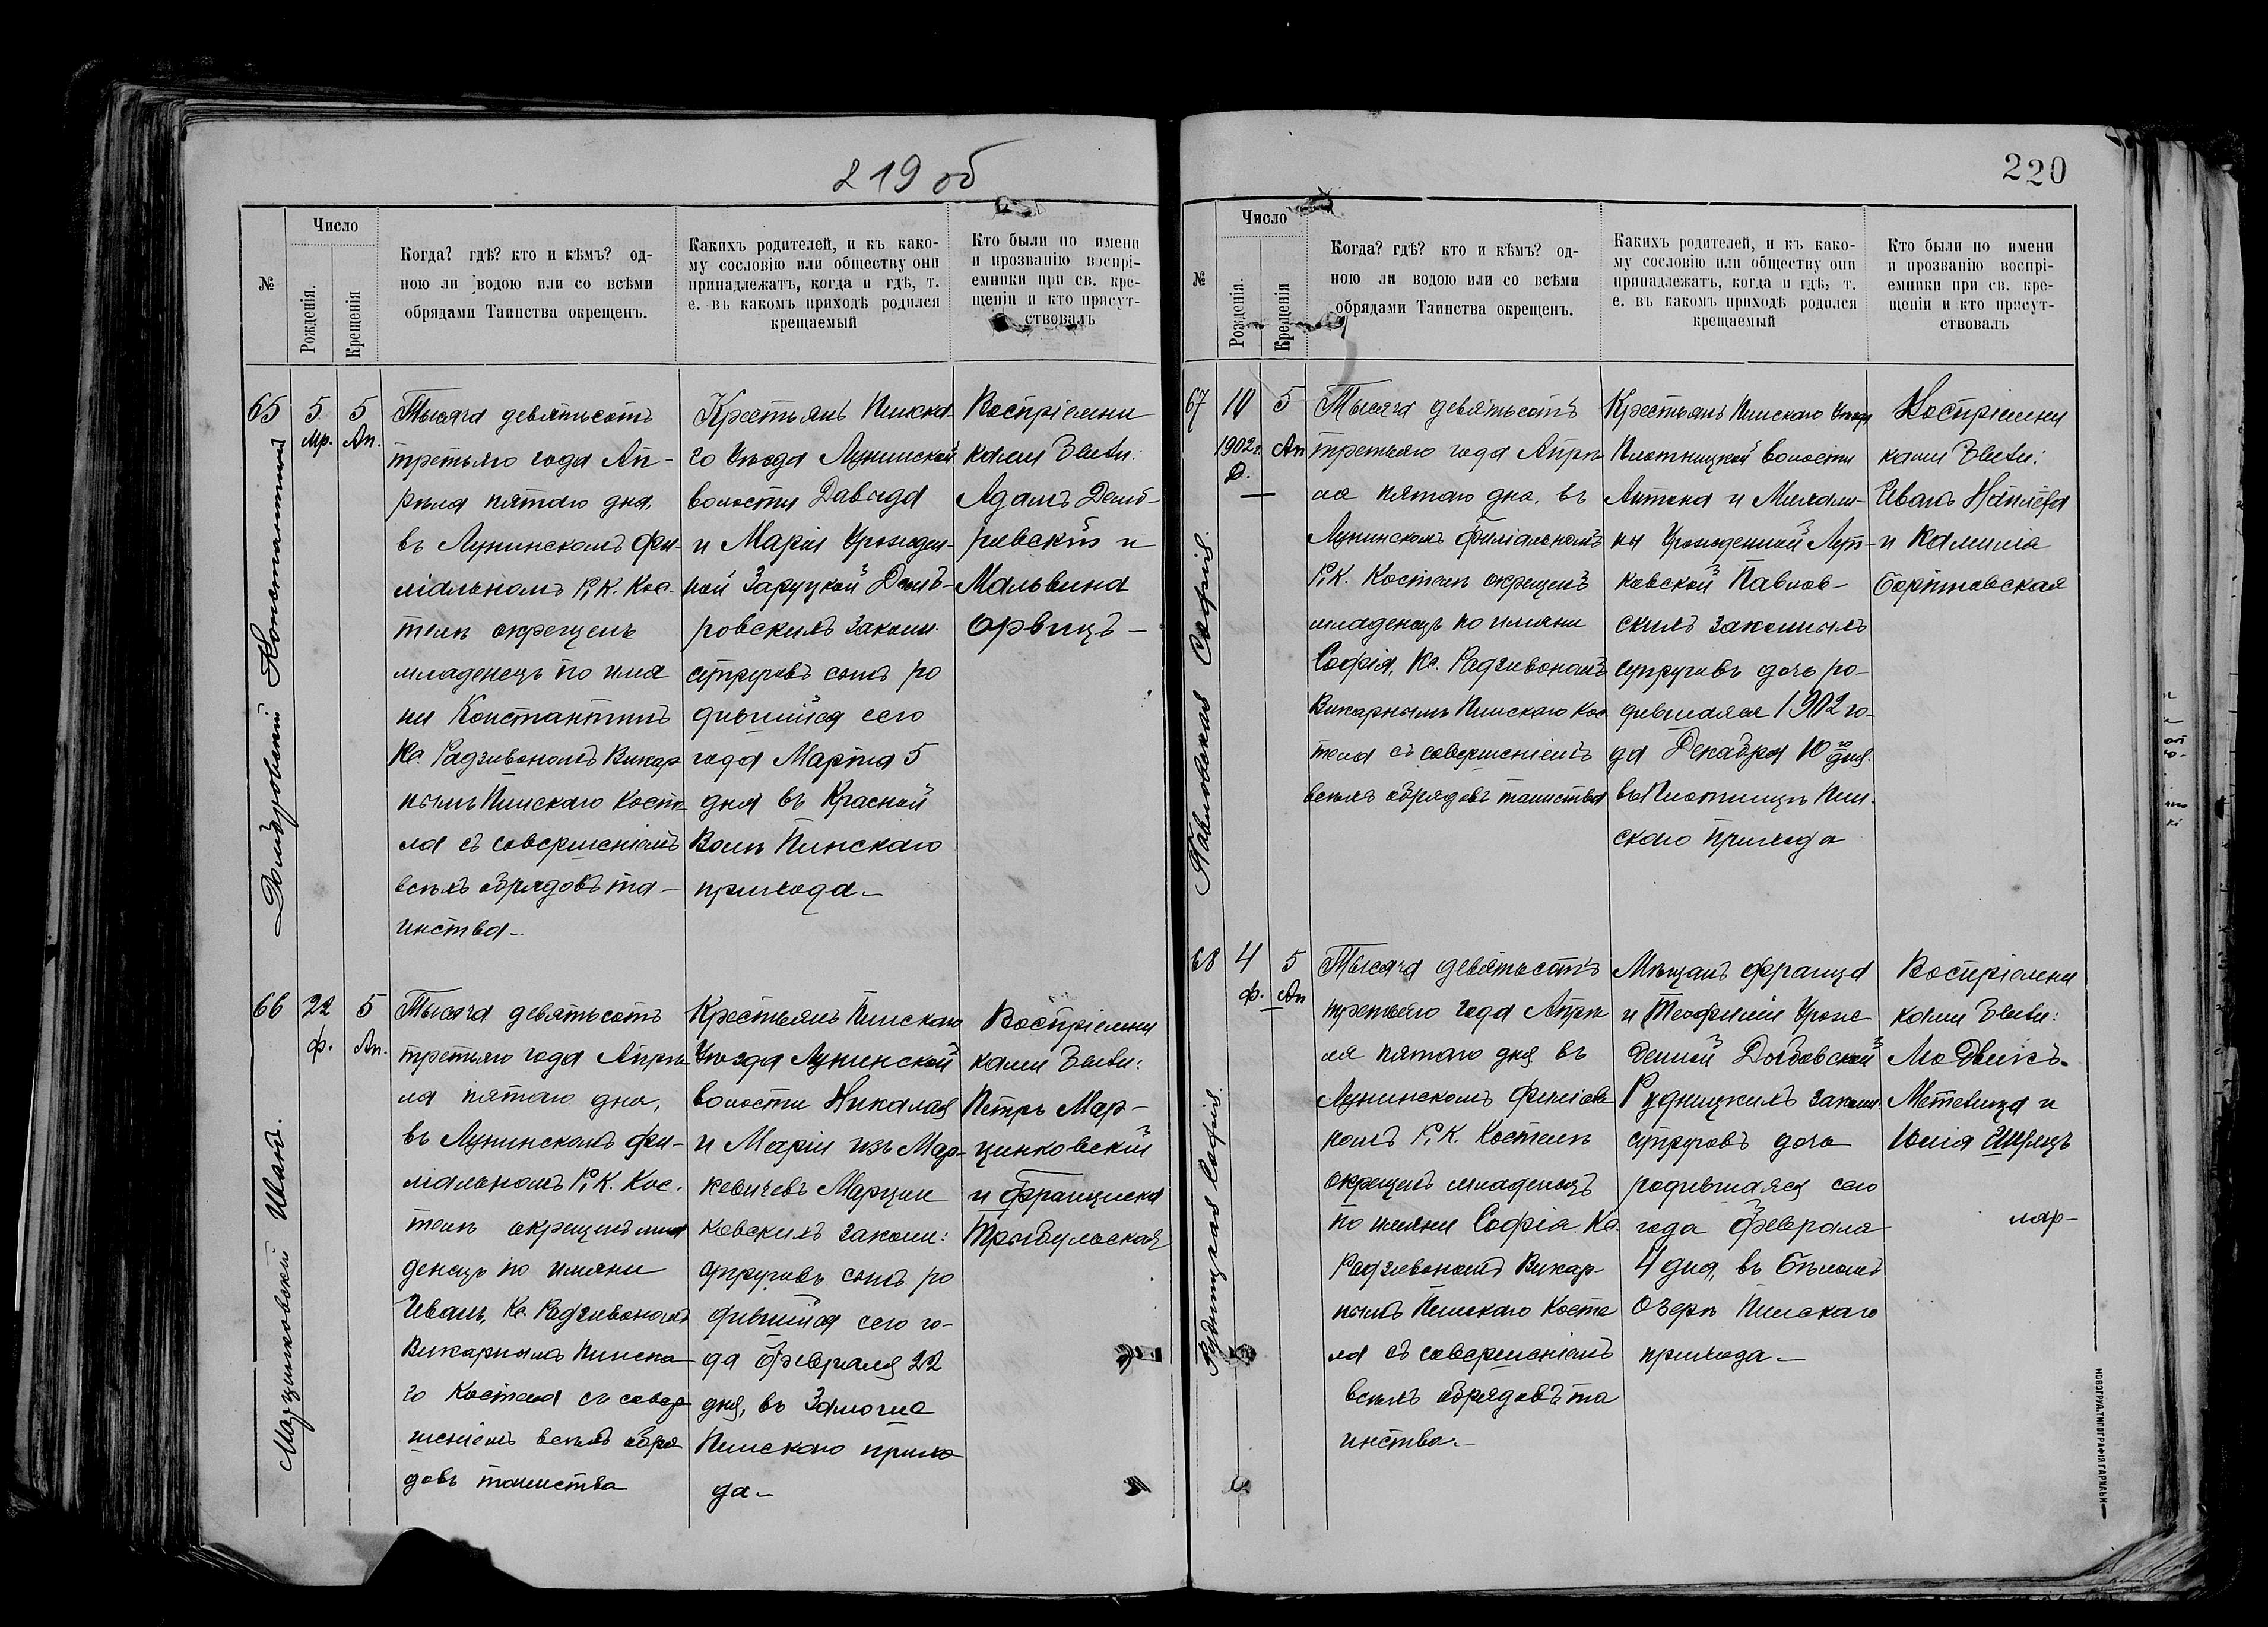 219 об
№
Число
Рожденія.
Крещенія
Когда? гдѣ? кто и кѣмъ? од-
ною ли водою или со всѣми
обрядами Таинства окрещенъ.
Какихъ родителей, и къ како-
му сословію или обществу они
принадлежатъ, когда и гдѣ, т.
е. въ какомъ приходѣ родился
крещаемый
Кто были по имени
и прозванію воспрі-
емники при св. кре-
щеніи и кто присут-
ствовалъ
65
Домбровскій Константинъ
5
Мр.
5
Ап.
Тысяча девятьсотъ
третьяго года Ап-
рѣля пятаго дня,
въ Лунинскомъ фи-
ліальномъ Р. К. Кос-
телѣ окрещенъ
младенецъ по име
ни Константинъ
Кс. Радзивономъ Викар
нымъ Пинскаго Косте
ла съ совершеніемъ
всѣхъ обрядовъ та-
инства.
Крестьянъ Пинска
го Уѣзда Лунинской
волости Давида
и Маріи Урожден-
ной Заруцкой Домб-
ровскихъ законн.
супруговъ сынъ ро
дившійся сего
года Марта 5
дня въ Красной
Волѣ Пинскаго
прихода.
Воспріемни
ками были:
Адамъ Домб-
ровскій и
Мальвина
Орвицъ
66
Марцинковскій Иванъ.
22
Ф.
5
Ап.
Тысяча девятьсотъ
третьяго года Апрѣ
ля пятаго дня,
въ Лунинскомъ фи-
ліальномъ Р. К. Кос.
телѣ окрещенъ мла
денецъ по имени
Иванъ, Кс. Радзивономъ
Викарнымъ Пинска
го Костела съ совер
шеніемъ всѣхъ обря
довъ таинства
Крестьянъ Пинскаго
Уѣзда Лунинской
волости Николая
и Маріи изъ Мар-
кевичевъ Марцин
ковскихъ законн:
супруговъ сынъ ро
дившійся сего го-
да Февраля 22
дня, въ
Пинскаго прихо
да.
Воспріемни
ками были:
Петръ Мар-
цинковскій
и Франциска
220
№
Число
Рожденія.
Крещенія
Когда? гдѣ? кто и кѣмъ? од-
ною ли водою или со всѣми
обрядами Таинства окрещенъ.
Какихъ родителей, и къ како-
му сословію или обществу они
принадлежатъ, когда и гдѣ, т.
е. въ какомъ приходѣ родился
крещаемый
Кто были по имени
и прозванію воспрі-
емники при св. кре-
щеніи и кто присут-
ствовалъ
67
Павловская Софія.
10
1902 г.
Д.
5
Ап
Тысяча девятьсотъ
третьяго года Апрѣ
ля пятаго дня, въ
Лунинскомъ Филіальномъ
Р. К. Костелѣ окрещенъ
младенецъ по имени
Софія, Кс. Радзивономъ
Викарнымъ Пинскаго Кос
тела съ совершеніемъ
всѣхъ обрядовъ таинства
Крестьянъ Пинскаго Уѣзда
Плотницкой волости
Антона и
ны Урожденной
ковской Павлов-
скихъ законныхъ
супруговъ дочь ро-
дившаяся 1902 го-
да Декабря 10 го дня
въ Плотницѣ Пин-
скаго прихода
Воспріемни
ками были:
Иванъ
и
68
Рудницкая Софія.
4
Ф.
5
Ап
Тысяча девятьсотъ
третьяго года Апрѣ
ля пятаго дня въ
Лунинскомъ Филіаль
номъ Р. К. Костелѣ
окрещенъ младенецъ
по имени Софія Кс.
Радзивономъ Викар-
нымъ Пинскаго Косте
ла съ совершеніемъ
всѣхъ обрядовъ та
инства.
Мѣщанъ Франца
и Теофиліи Урож
денной
Рудницкихъ законн.
супруговъ дочь
родившаяся сего
года Февраля
4 дня, въ Бѣломъ
Озерѣ Пинскаго
прихода.
Воспріемни
ками были:
и
Юлія
НОВОГРУД. ТИПОГРАФІЯ